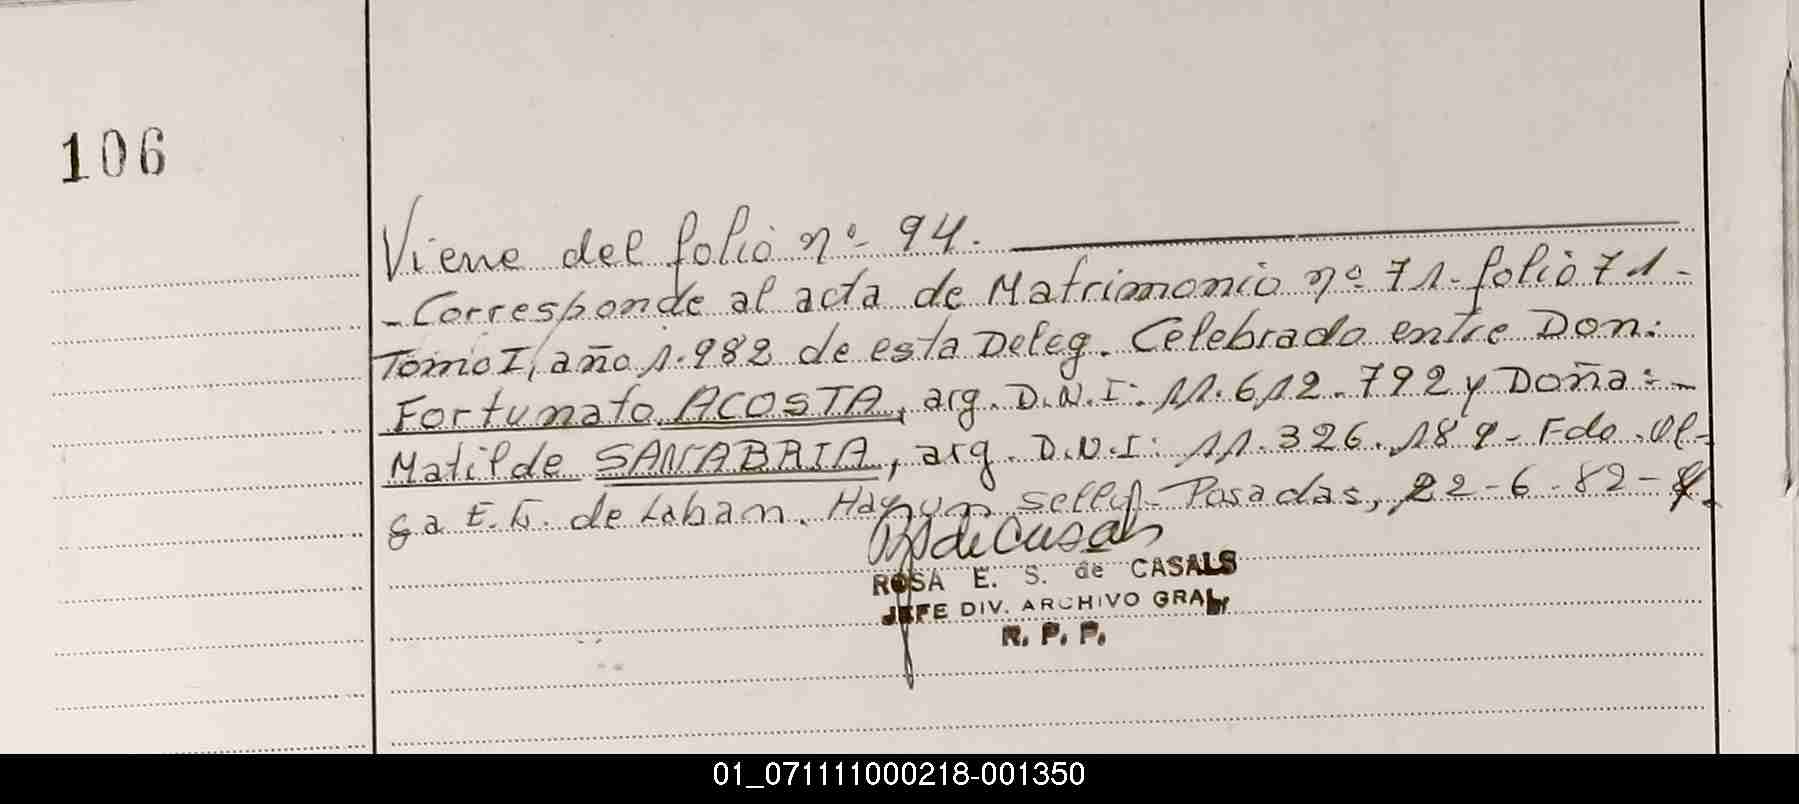 106
Viene del folio nº 94.
- Corresponde al acta de Matrimonio nº 71 - folio 71 -
Tomo I, año 1.982 de esta Deleg. Celebrado entre Don:
Fortunato ACOSTA, arg. D.N.I: 11.612.792 y Doña: -
Matilde SANABRIA, arg. D.N.I: 11.326.189 - Fdo. Ol-
ga E. G. de Laban. Hay un sello - Posadas, 22-6-82-
de Casals
ROSA E. S. de CASALS
JEFE DIV. ARCHIVO GRAL.
R. P. P.
01_071111000218-001350